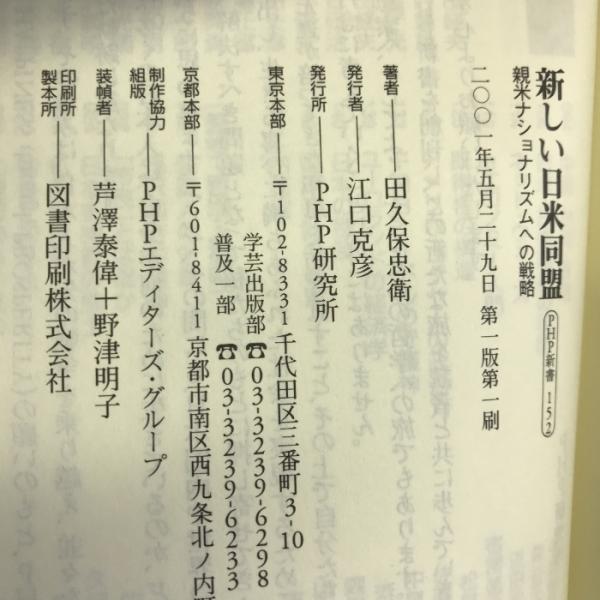 新しい日米同盟 PHP新書 152
親米ナショナリズムへの戦略
二〇〇一年五月二十九日 第一版第一刷
著者――田久保忠衛
発行者――江口克彦
発行所――PHP研究所
東京本部――〒102-8331 千代田区三番町3-10
学芸出版部 ☎03-3239-6298
普及一部 ☎03-3239-6233
京都本部――〒601-8411 京都市南区西九条北ノ内町
制作協力
組版――PHPエディターズ・グループ
装幀者――芦澤泰偉＋野津明子
印刷所
製本所――図書印刷株式会社